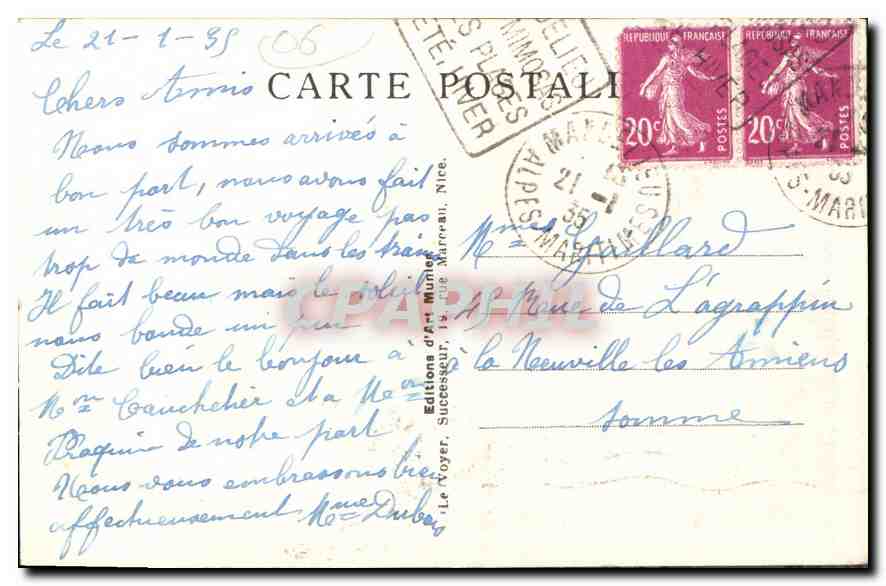 Le 21-1-35
06
Chers Amis
Nous sommes arrivés à
bon port, nous avons fait
un très bon voyage pas
trop de monde dans les trains
Il fait beau mais le soleil
nous boude un peu
Dite bien le bonjour à
Mon Cauchetier et a Mon
Praquin de notre part
Nous vous embrassons bien
affectueusement Mme
CARTE POSTALE
DELIEU
MIMOSAS
S PLAGES
ETÉ, HIVER
REPUBLIQUE FRANÇAISE
20c
POSTES
REPUBLIQUE FRANÇAISE
20c
POSTES
MAN
21 - 1
35
ALPES-MARITIM
Editions d'Art Munier
Le Voyer, Successeur, 19, rue Marceau, Nice.
CPAPHIL
Mme Gaillard
45 Rue de L'agrappin
à la Neuville les Amiens
Somme